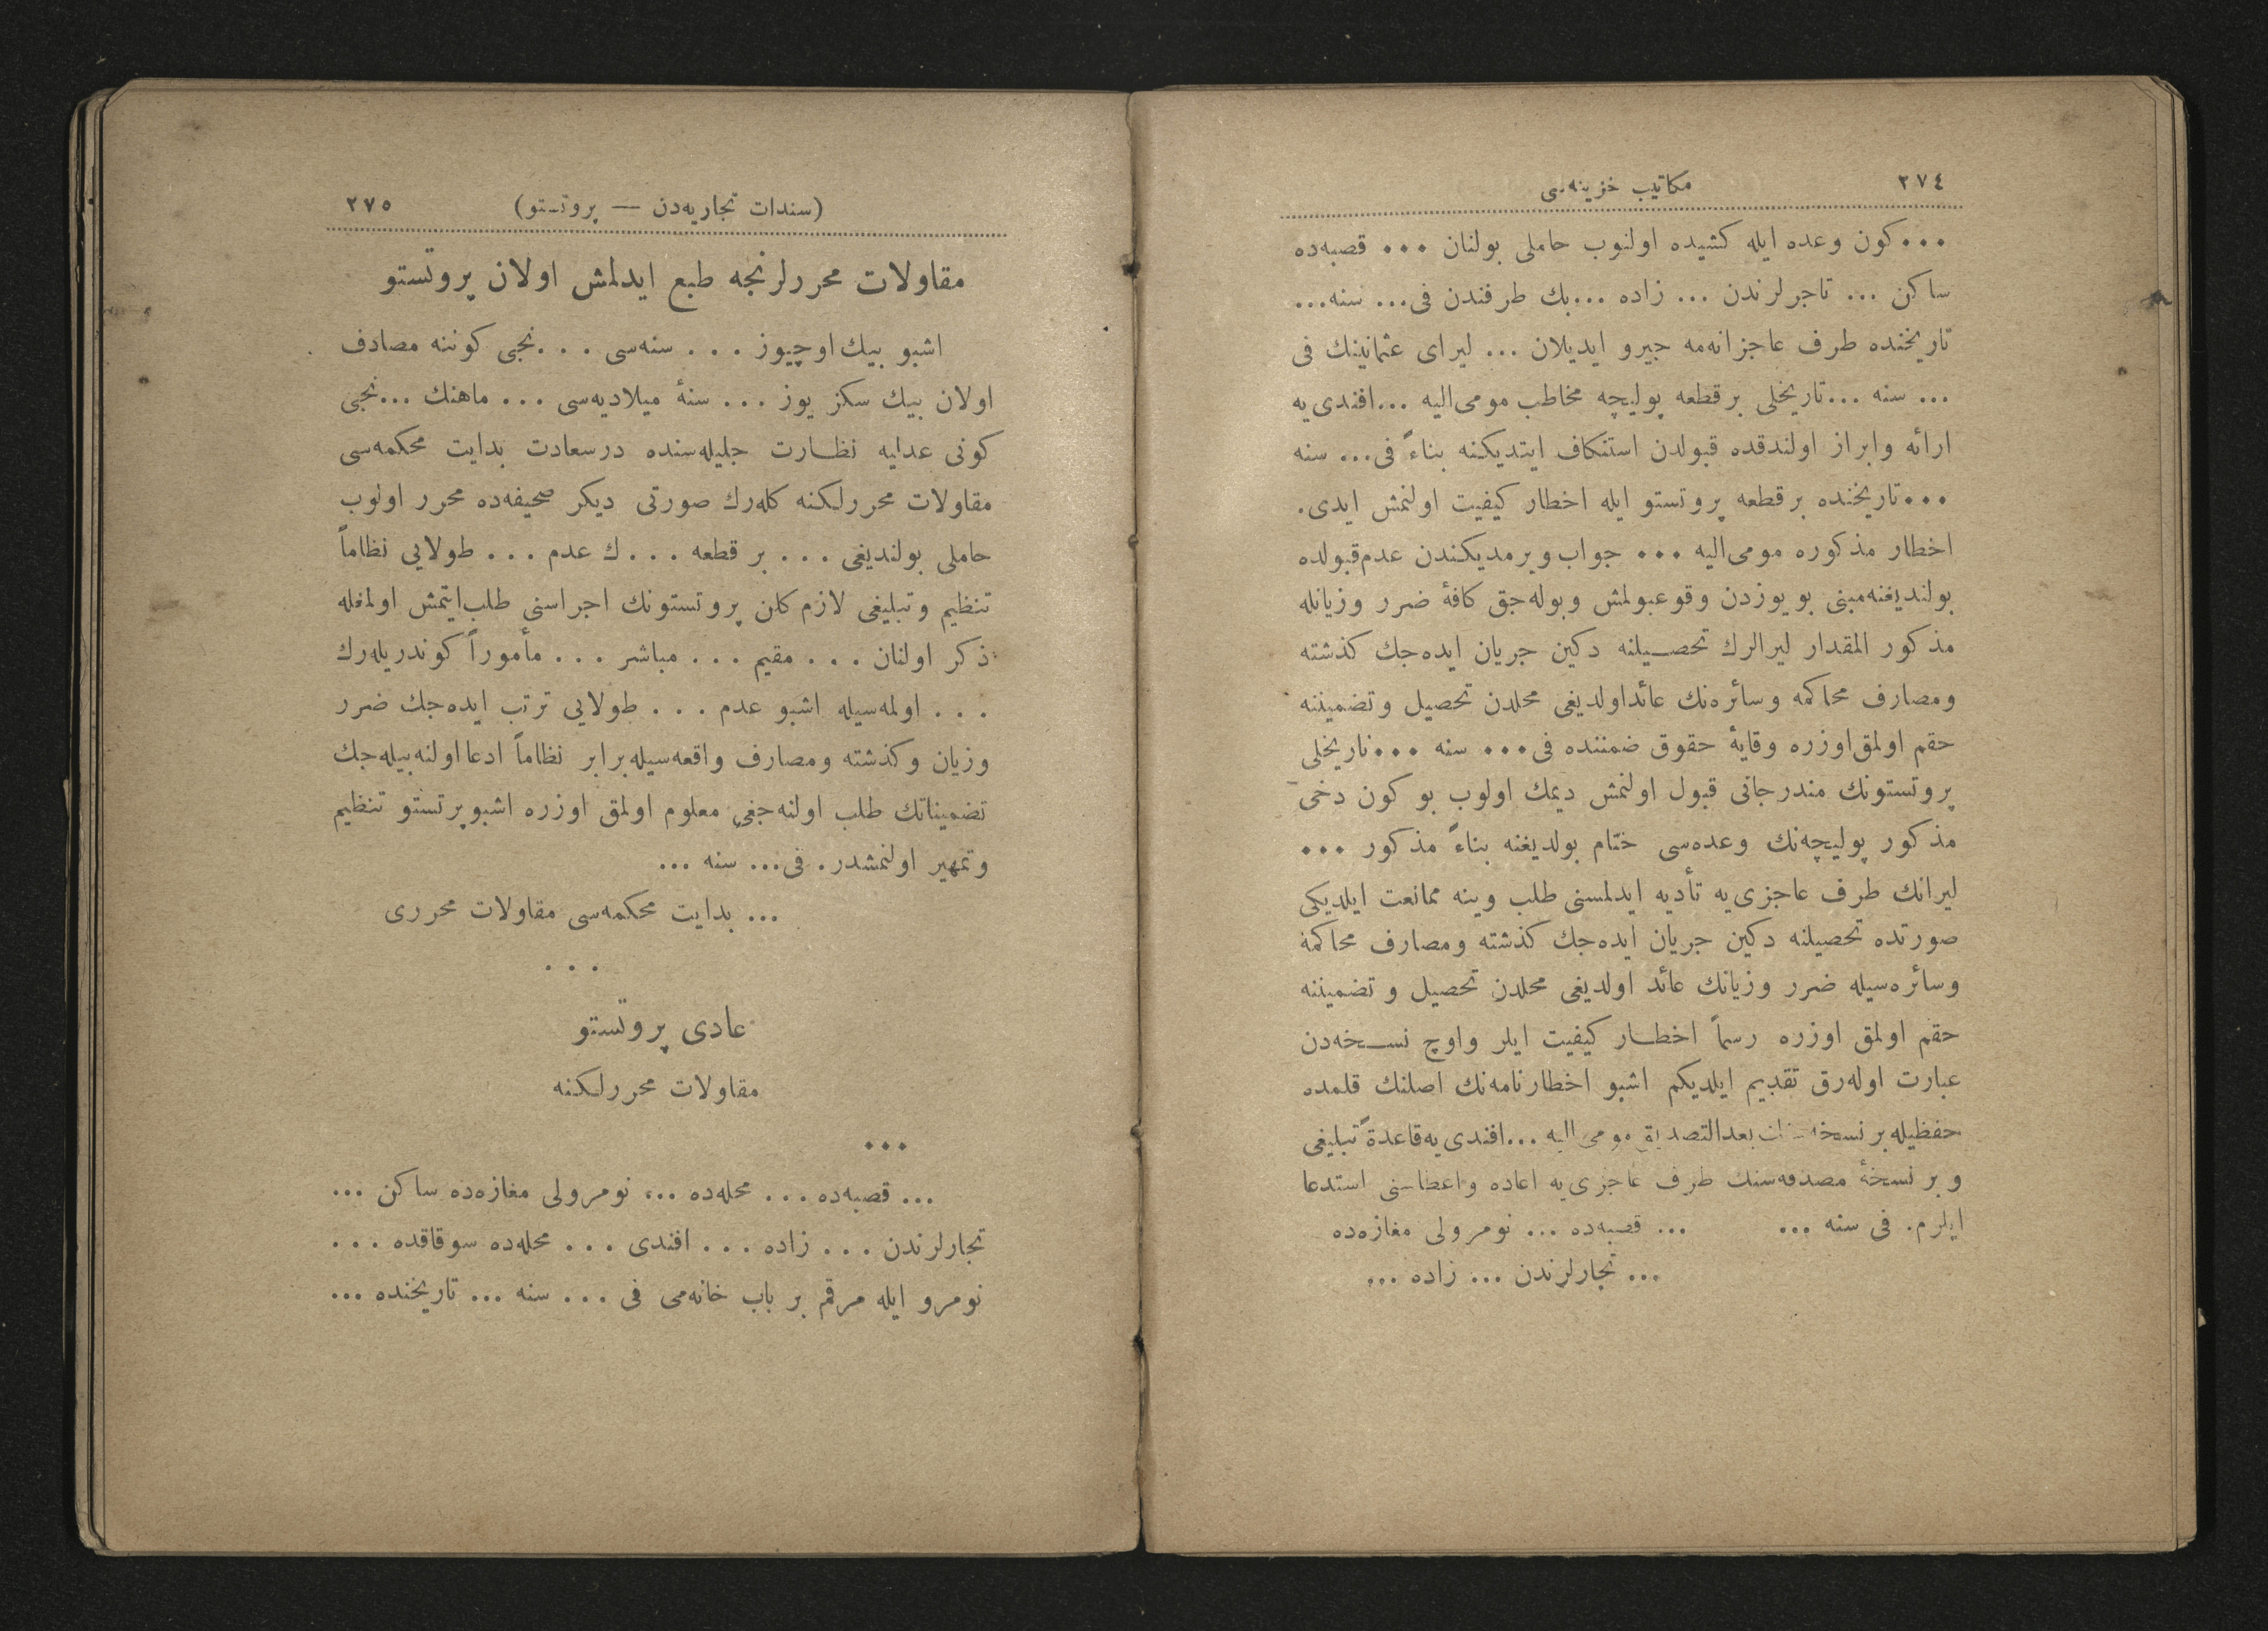 ٢٧٤ مكاتيب خزينه‌سی
...كون وعده ايله كشيده اولنوب حاملی بولنان ... قصبه‌ده
ساكن ... تاجرلرندن ... زاده ...بك طرفندن فی... سنه...
تاريخنده طرف عاجزانه‌مه جيرو ايديلان ... ليرای عثمانينك فی
... سنه ...تاريخلی برقطعه پوليچه مخاطب مومی‌اليه ...افندی‌يه
ارائه وابراز اولندقده قبولدن استنكاف ايتديكنه بناءً فی... سنه
...تاريخنده برقطعه پروتستو ايله اخطار كيفيت اولنمش ايدی.
اخطار مذكوره مومی‌اليه ... جواب ويرمديكندن عدم‌قبولده
بولنديغنه‌مبنی بويوزدن وقوعبولمش وبوله‌جق كافهٔ ضرر وزيانله
مذكور المقدار ليرالرك تحصيلنه دكين جريان ايده‌جك كذشته
ومصارف محاكمه وسائره‌نك عائداولديغی محلدن تحصيل وتضميننه
حقم اولمق‌اوزره وقايهٔ حقوق ضمننده فی... سنه ...تاريخلی
پروتستونك مندرجاتی قبول اولنمش ديمك اولوب بو كون دخی
مذكور پوليچه‌نك وعده‌سی ختام بولديغنه بناءً مذكور ...
ليرانك طرف عاجزی‌يه تأديه ايدلمسنی طلب وينه ممانعت ايلديكی
صورتده تحصيلنه دكين جريان ايده‌جك كذشته ومصارف محاكمهٔ
وسائره‌سيله ضرر وزيانك عائد اولديغی محلدن تحصيل و تضميننه
حقم اولمق اوزره رسماً اخطار كيفيت ايلر واوچ نسخه‌دن
عبارت اوله‌رق تقديم ايلديكم اشبو اخطارنامه‌نك اصلنك قلمده
حفظيله‌بر نسخه‌سنك بعدالتصديق مومی‌اليه ...افندی‌يه‌قاعدةً تبليغی
و بر نسخهٔ مصدقه‌سنك طرف عاجزی‌يه اعاده واعطاسنی استدعا
ايلرم. فی سنه ... ... قصبه‌ده ... نومرولی مغازه‌ده
... تجارلرندن ... زاده ...
(سندات تجاريه‌دن — پروتستو) ٢٧٥
مقاولات محررلرنجه طبع ايدلمش اولان پروتستو
اشبو بيك‌اوچيوز ... سنه‌سی ...نجی كوننه مصادف
اولان بيك سكز يوز ... سنهٔ ميلاديه‌سی ... ماهنك ...نجی
كونی عدليه نظارت جليله‌سنده درسعادت بدايت محكمه‌سی
مقاولات محررلكنه كله‌رك صورتی ديكر صحيفه‌ده محرر اولوب
حاملی بولنديغی ... بر قطعه ...ك عدم ... طولايی نظاماً
تنظيم وتبليغی لازم‌كلن پروتستونك اجراسنی طلب‌ايتمش اولمغله
ذكر اولنان ... مقيم ... مباشر ... مأموراً كوندريله‌رك
... اولمه‌سيله اشبو عدم ... طولايی ترتب ايده‌جك ضرر
وزيان وكذشته ومصارف واقعه‌سيله‌برابر نظاماً ادعااولنه‌بيله‌جك
تضميناتك طلب اولنه‌جغی معلوم اولمق اوزره اشبوپرتستو تنظيم
وتمهير اولنمشدر. فی... سنه ...
... بدايت محكمه‌سی مقاولات محرری
...
عادی پروتستو
مقاولات محررلكنه
...
... قصبه‌ده ... محله‌ده ... نومرولی مغازه‌ده ساكن ...
تجارلرندن ... زاده ... افندی ... محله‌ده سوقاقده ...
نومرو ايله مرقم بر باب خانه‌می فی ... سنه ... تاريخنده ...